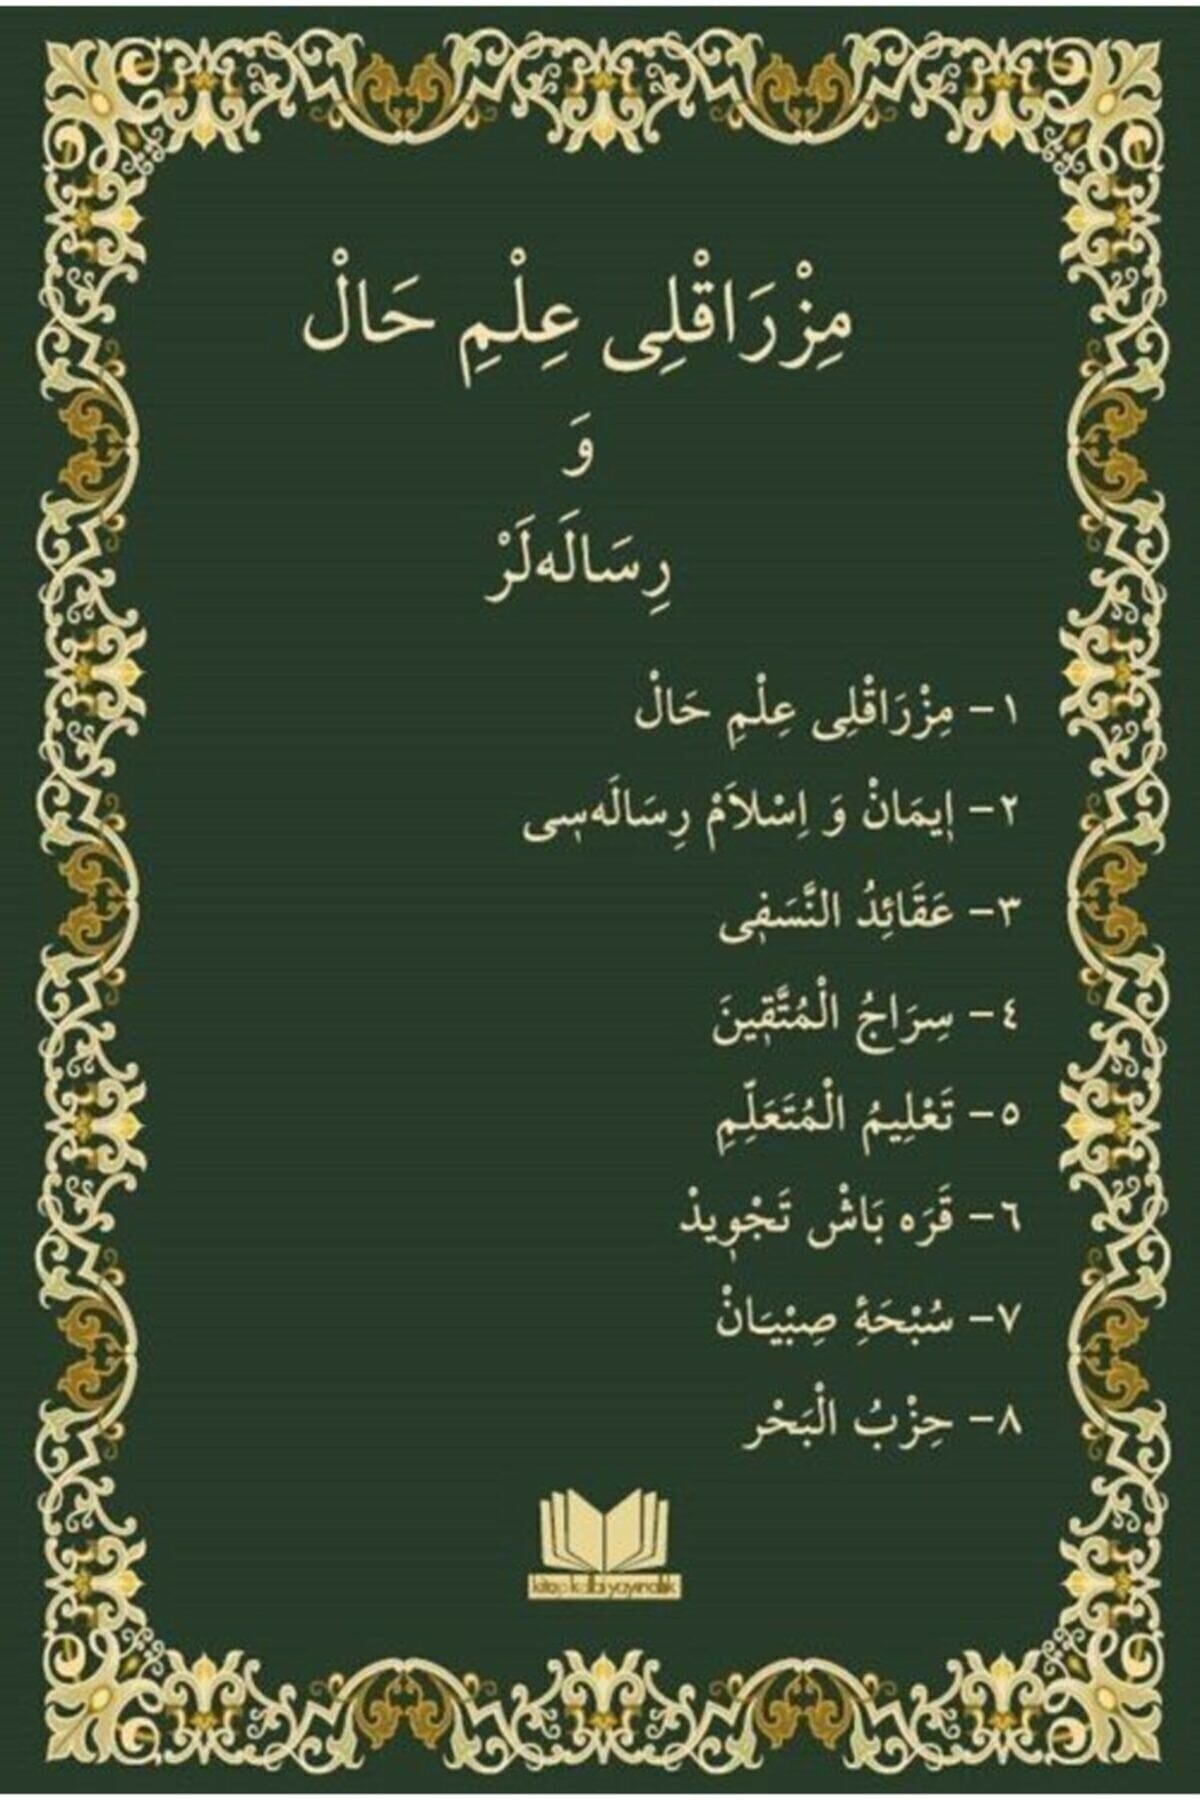 مِزْرَاقْلِى عِلْمِ حَالْ
وَ
رِسَالَه‌لَرْ
١– مِزْرَاقْلِى عِلْمِ حَالْ
٢– اِيمَانْ وَ اِسْلاَمْ رِسَالَه‌سِى
٣– عَقَائِدُ النَّسَفِى
٤– سِرَاجُ الْمُتَّقِينَ
٥– تَعْلِيمُ الْمُتَعَلِّمِ
٦– قَرَه بَاشْ تَجْوِيدْ
٧– سُبْحَۀِ صِبْيَانْ
٨– حِزْبُ الْبَحْر
kitap kalbi yayıncılık